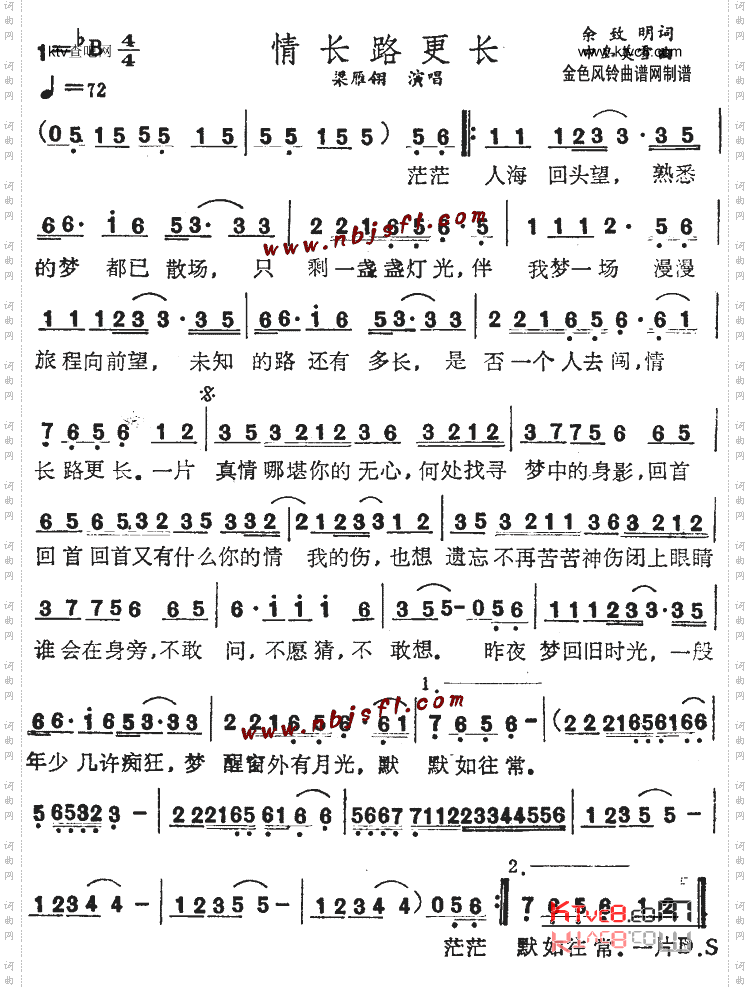 1=♭B 4/4 情长路更长 余致明词
ktv查吧网 www.ktvc8.com
♩=72 梁雁翎 演唱 金色风铃曲谱网制谱
(05 1555 15 | 55 155) 56 ‖: 11 123 3·35 |
茫茫 人海 回头望, 熟悉
66· i6 53·33 | 221656·5 | 1112· 56
www.nbjsft.com
的梦 都已 散场, 只 剩一盏盏灯光,伴 我梦一场 漫漫
111123 3·35 | 66·i6 53·33 | 221656·61 |
旅程向前望, 未知 的路还有 多长, 是 否一个人去闯,情
𝄋
7656 12 | 35 321236 3212 | 37756 65 |
长路更长。一片 真情哪堪你的无心,何处找寻 梦中的身影,回首
656532 35 332 | 21233 12 | 35321136 3212 |
回首回首又有什么你的情 我的伤,也想 遗忘不再苦苦神伤闭上眼睛
37756 65 | 6·ii i 6 | 355-056 | 111233·35 |
谁会在身旁,不敢 问,不愿猜,不 敢想。 昨夜 梦回旧时光,一般
1.
66·i653·33 | 2216566·61 | 7656- | (2221656166
www.nbjsft.com
年少几许痴狂,梦 醒窗外有月光,默 默如往常。
565323- | 222165 6166 | 5667 71122334455 6 | 12355- |
2.
12344- | 12355- | 12344-) 056 :‖ 7656 12 ‖
Ktvc8.com
茫茫 默如往常。一片D.S
词曲网